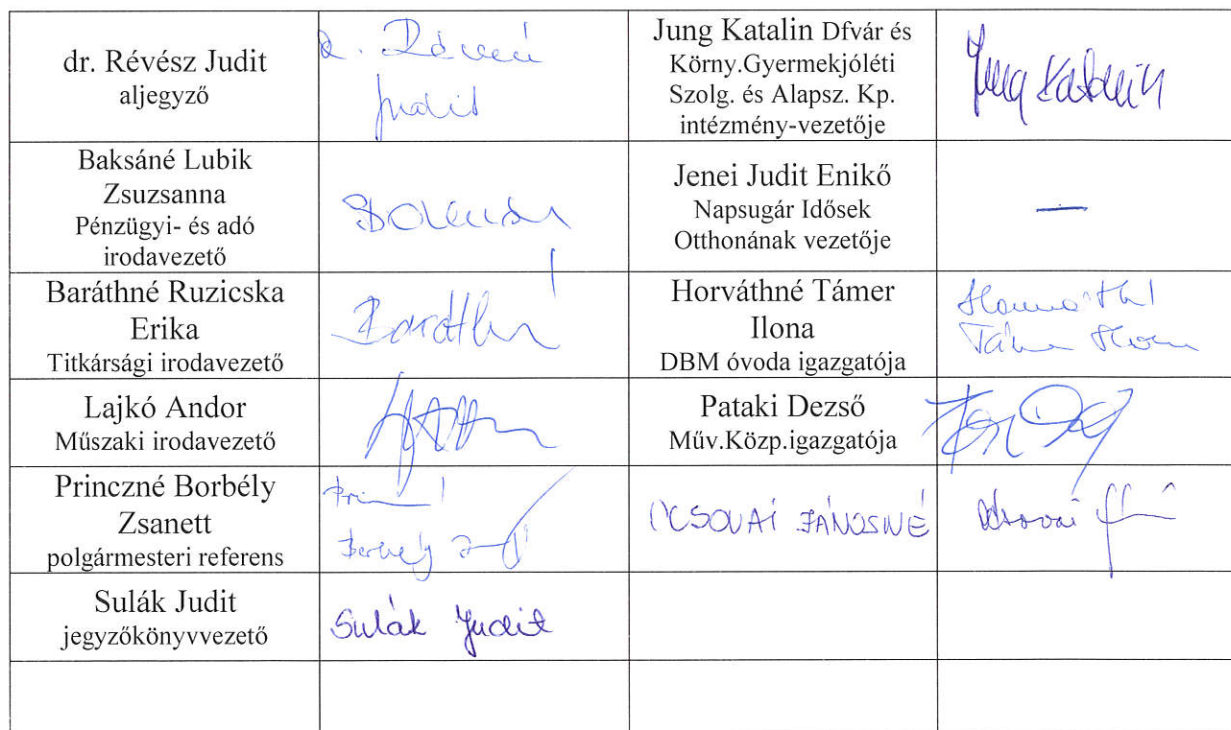 dr. Révész Judit
aljegyző
Judit
Jung Katalin Dfvár és
Körny.Gyermekjóléti
Szolg. és Alapsz. Kp.
intézmény-vezetője
Jung Katalin
Baksáné Lubik
Zsuzsanna
Pénzügyi- és adó
irodavezető
Jenei Judit Enikő
Napsugár Idősek
Otthonának vezetője
—
Baráthné Ruzicska
Erika
Titkársági irodavezető
Baráthné
Horváthné Támer
Ilona
DBM óvoda igazgatója
Horváthné
Támer Ilona
Lajkó Andor
Műszaki irodavezető
Pataki Dezső
Műv.Közp.igazgatója
Princzné Borbély
Zsanett
polgármesteri referens
Borbély
JÁNOSNÉ
Sulák Judit
jegyzőkönyvvezető
Sulák Judit